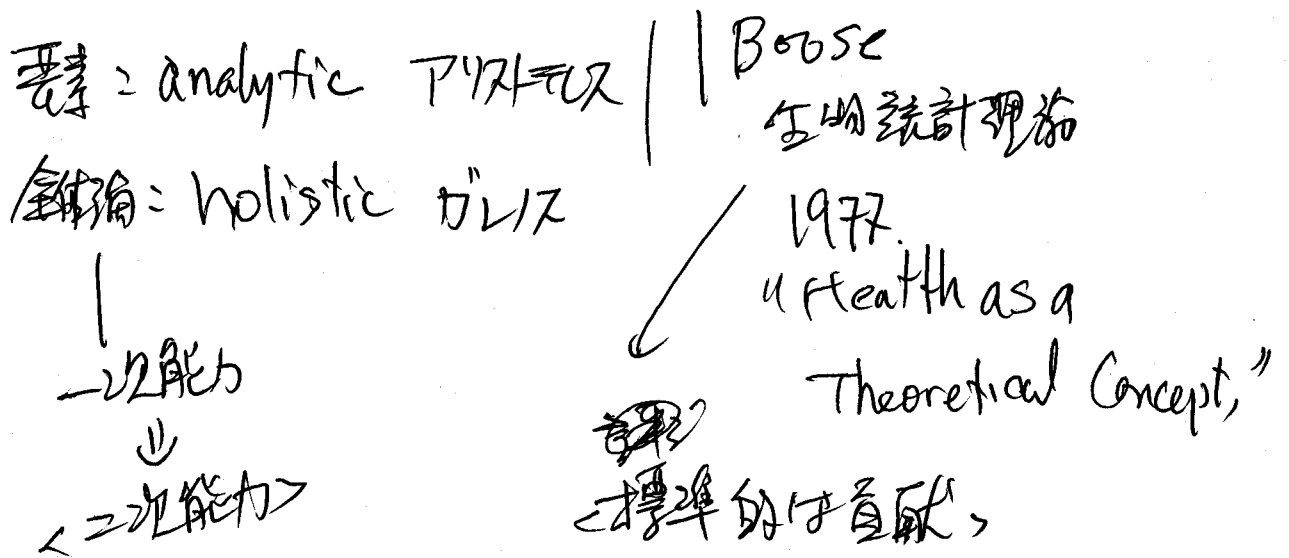 要素：analytic アリストテレス
全体論：holistic ガレノス
一次能力
⇓
<二次能力>
Boose
生物統計理論
1977.
"Health as a
Theoretical Concept,"
<標準的な貢献>